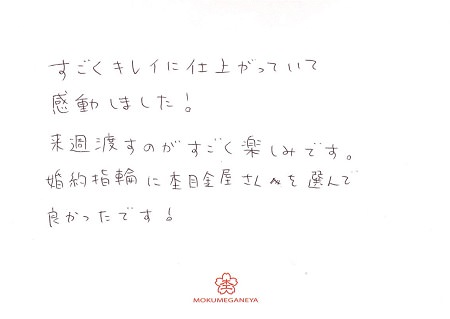 すごくキレイに仕上がっていて
感動しました!
来週渡すのがすごく楽しみです。
婚約指輪に杢目金屋さんを選んで
良かったです!
MOKUMEGANEYA